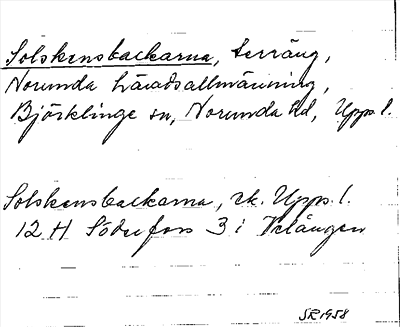 Solskensbackarna, terräng,
Norunda häradsallmänning,
Björklinge sn, Norunda hd, Upps. l.
Solskensbackarna, rk. Upps. l.
12 H Söderfors 3 i Vrången
SR 1958